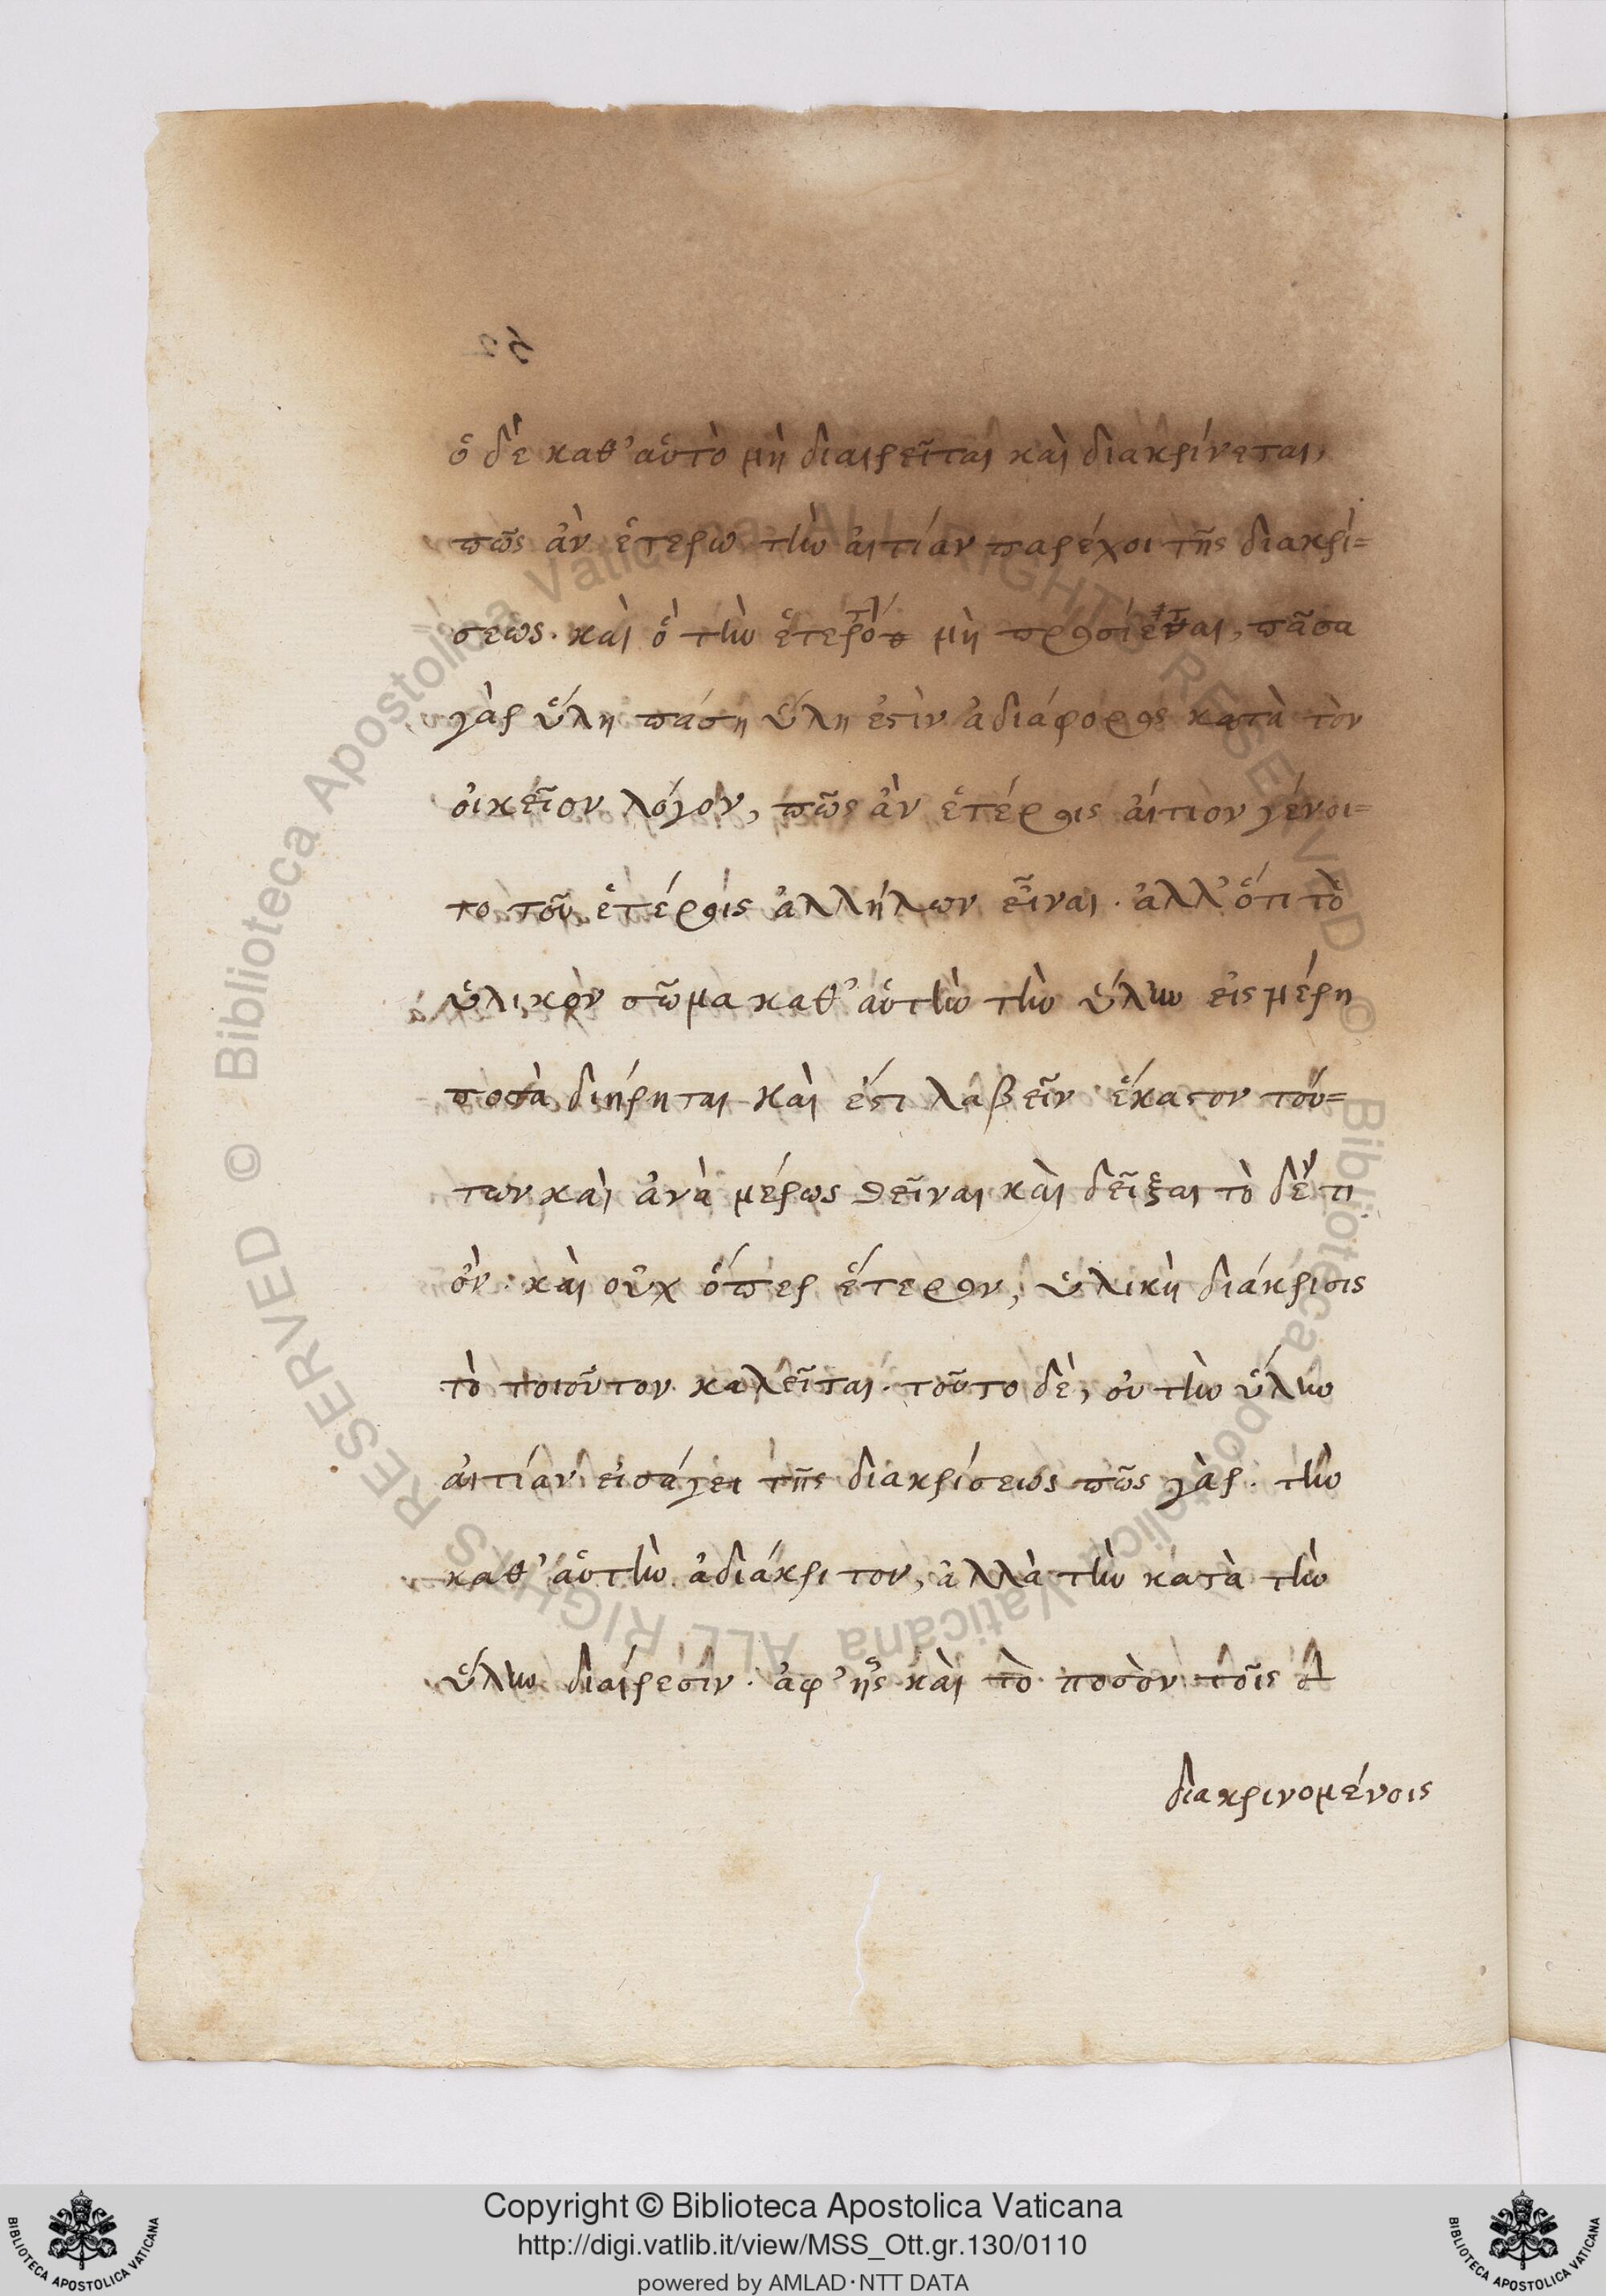 ὃ δὲ καθ' αὑτὸ μὴ διαιρεῖται καὶ διακρίνεται,
πῶς ἂν ἑτέρω τὴν αἰτίαν παρέχοι τῆς διακρί=
σεως. καὶ ὃ τὴν μὴ πᾶσα
γὰρ ὕλη πάση ὕλη ἐστὶν ἀδιάφορος κατὰ τὸν
οἰκεῖον λόγον, πῶς ἂν ἑτέροις αἴτιον γένοι=
το τοῦ ἑτέροις ἀλλήλων εἶναι. ἀλλ' ὅτι τὸ
ὑλικὸν σῶμα καθ' αὑτὴν τὴν ὕλην εἰς μέρη
ποσὰ διήρηται καὶ ἔστι λαβεῖν ἕκαστον τού=
των καὶ ἀνὰ μέρως θεῖναι καὶ δεῖξαι τὸ δέ τι
ὂν. καὶ οὐχ ὅπερ ἕτερον, ὑλικὴ διάκρισις
τὸ τοιοῦτον καλεῖται. τοῦτο δὲ, οὐ τὴν ὕλην
αἰτίαν εἰσάγει τῆς διακρίσεως πῶς γὰρ. τὴν
καθ' αὑτὴν ἀδιάκριτον, ἀλλὰ τὴν κατὰ τὴν
ὕλην διαίρεσιν. ἀφ' ἧς καὶ τὸ ποσὸν τοῖς
διακρινομένοις
© Biblioteca Apostolica Vaticana ALL RIGHTS RESERVED © Biblioteca Apostolica Vaticana ALL RIGHTS RESERVED
Copyright © Biblioteca Apostolica Vaticana
http://digi.vatlib.it/view/MSS_Ott.gr.130/0110
powered by AMLAD·NTT DATA
BIBLIOTECA APOSTOLICA VATICANA
BIBLIOTECA APOSTOLICA VATICANA